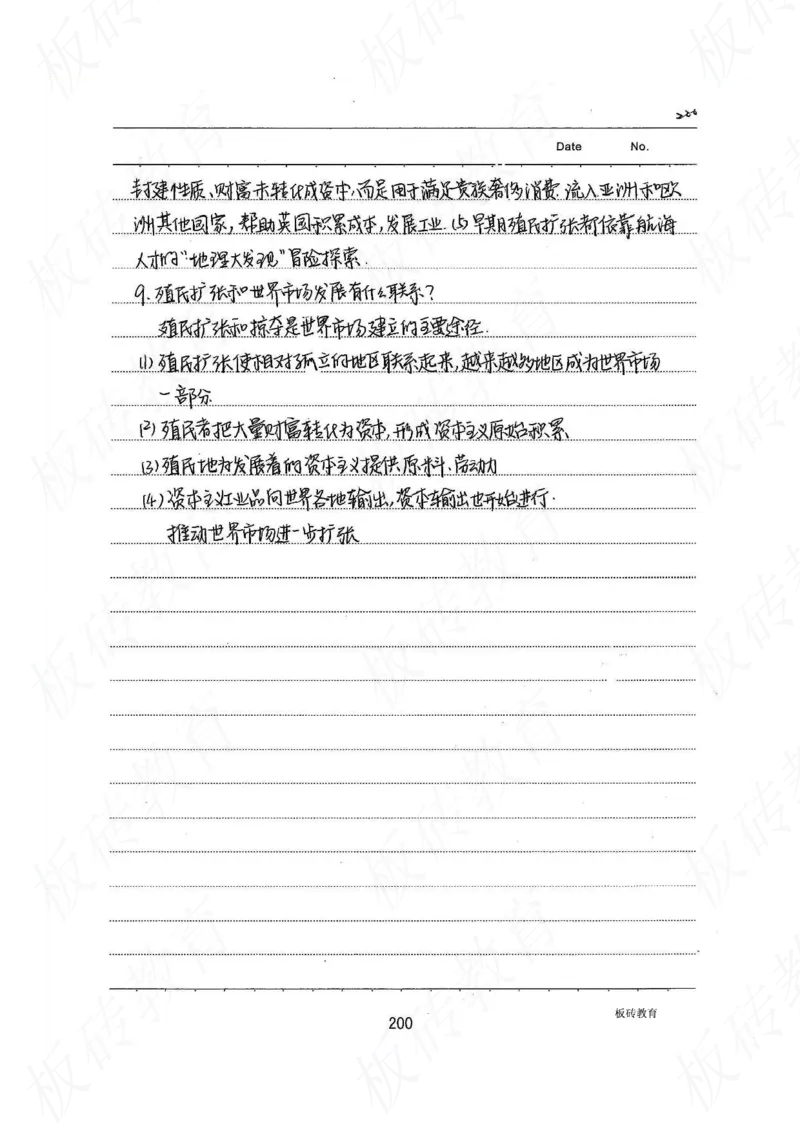 226
Date No.
封建性质、财富未转化成资本,而是用于满足贵族奢侈消费.流入亚洲和欧
洲其他国家,帮助英国积累成本,发展工业.(5)早期殖民扩张都依靠航海
人才的“地理大发现”冒险探索.
9.殖民扩张和世界市场发展有什么联系?
殖民扩张和掠夺是世界市场建立的主要途径.
(1)殖民扩张使相对孤立的地区联系起来,越来越多地区成为世界市场
一部分.
(2)殖民者把大量财富转化为资本,形成资本主义原始积累
(3)殖民地为发展着的资本主义提供原料、劳动力
(4)资本主义工业品向世界各地输出,资本输出也开始进行.
推动世界市场进一步扩张
板砖教育
200